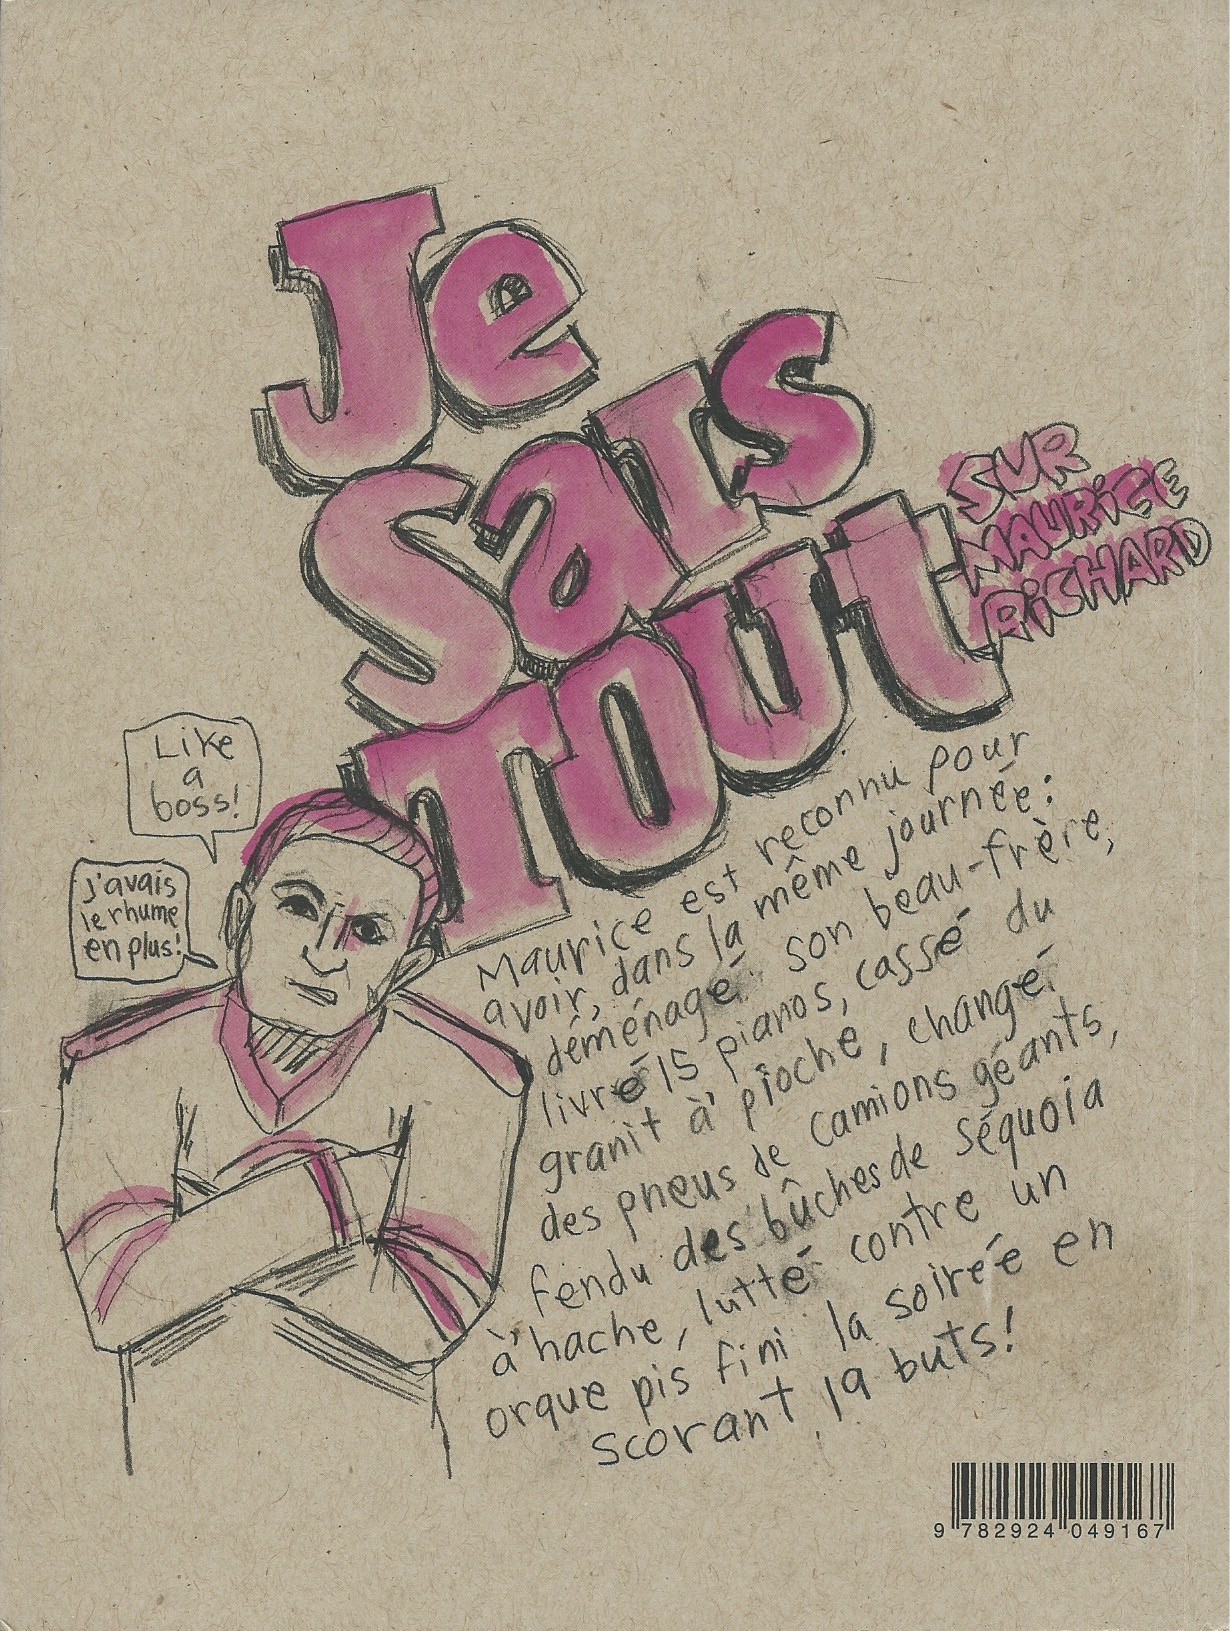 Je
Sais
TOUt
SUR
MAURiCE
RiCHARD
Like
a
boss!
J'avais
le rhume
en plus!
Maurice est reconnu pour
avoir, dans la même journée:
déménagé son beau-frère,
livré 15 pianos, cassé du
granit à pioche, changé
des pneus de camions géants,
fendu des bûches de séquoia
à hache, lutté contre un
orque pis fini la soirée en
scorant 19 buts!
9 782924 049167